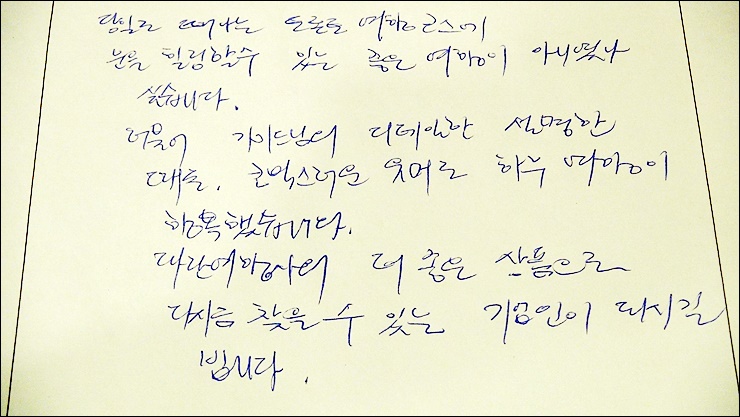 당일로 떠나는 오늘도 여행코스에
분을 힐링할수 있는 좋은 여행이 아니였나
싶습니다.
더욱이 가이드님의 디테일한 설명한
때론. 코믹스러운 웃머로 하루 여행이
행복했습니다.
대란여행사의 더 좋은 상품으로
다시금 찾을 수 있는 기업인이 되시길
빕니다.